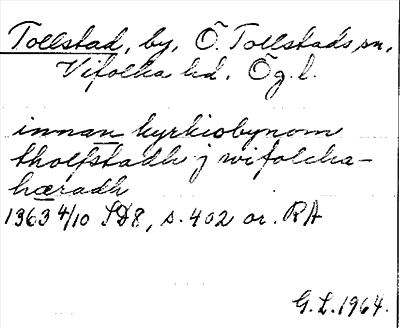 Tollstad, by, Ö. Tollstads sn,
Vifolka hd. Ög. l.
innan kyrkiobynom
tholfstadh j wifolcha-
hæradh
1363 4/10 SD8, s. 402 or. RA
G. L. 1964.